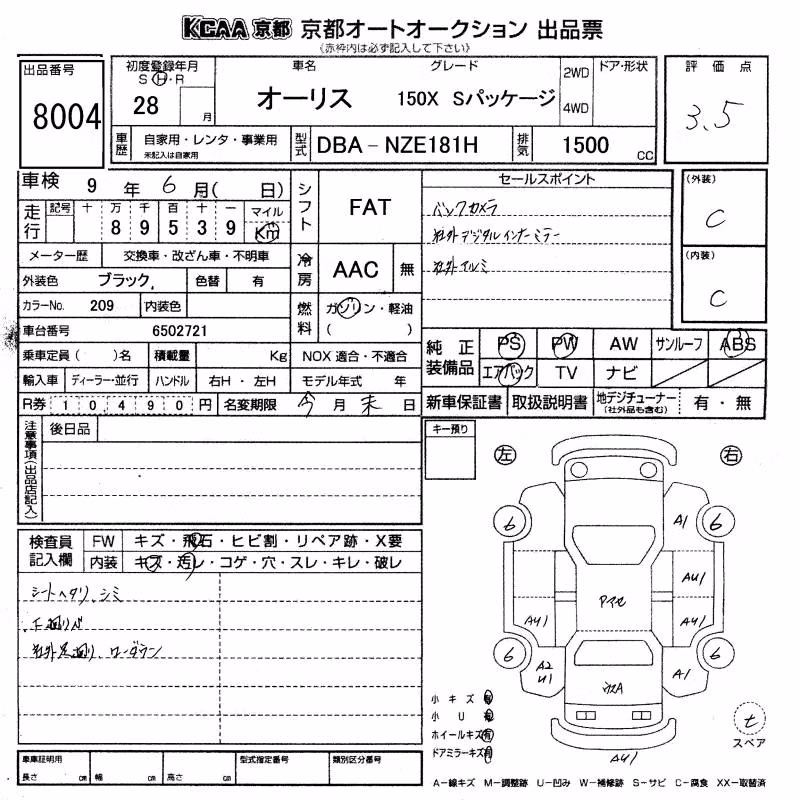 KCAA 京都 京都オートオークション 出品票
(赤枠内は必ず記入して下さい)
出品番号 8004
初度登録年月 S H R 28 月
車名 オーリス
グレード 150X Sパッケージ
2WD 4WD
ドア・形状
評価点 3.5
車歴 自家用・レンタ・事業用
未記入は自家用
型式 DBA-NZE181H
排気 1500 CC
車検 9 年 6 月( 日)
走行 記号 十 万 千 百 十 一 マイル
8 9 5 3 9 Km
メーター歴 交換車・改ざん車・不明車
外装色 ブラック 色替 有
カラーNo. 209 内装色
車台番号 6502721
乗車定員( )名 積載量 Kg
輸入車 ディーラー・並行 ハンドル 右H・左H
R券 10490円 名変期限 今月末日
シフト FAT
冷房 AAC 無
燃料 ガソリン・軽油
( )
NOX 適合・不適合
モデル年式 年
セールスポイント
バックカメラ
社外デジタルインナーミラー
社外アルミ
(外装)
C
(内装)
C
純正装備品 PS PW AW サンルーフ ABS
エアバック TV ナビ
新車保証書 取扱説明書 地デジチューナー (社外品も含む) 有・無
注意事項(出品店記入) 後日品
キー預り
左 右
検査員記入欄 FW キズ・飛石・ヒビ割・リペア跡・X要
内装 キズ・汚レ・コゲ・穴・スレ・キレ・破レ
シートヘタリ、シミ
下廻り
社外足廻り、ローダウン
6 6
A1
AU1
AU1 AU1
6 6
A2 U1
A1
AU1
小キズ 有
小U 有
ホイールキズ 有
ドアミラーキズ 有
t
スペア
車車証明用 長さ cm 幅 cm 高さ cm
型式指定番号 類別区分番号
A-線キズ M-調整跡 U-凹み W-補修跡 S-サビ C-腐食 XX-取替済